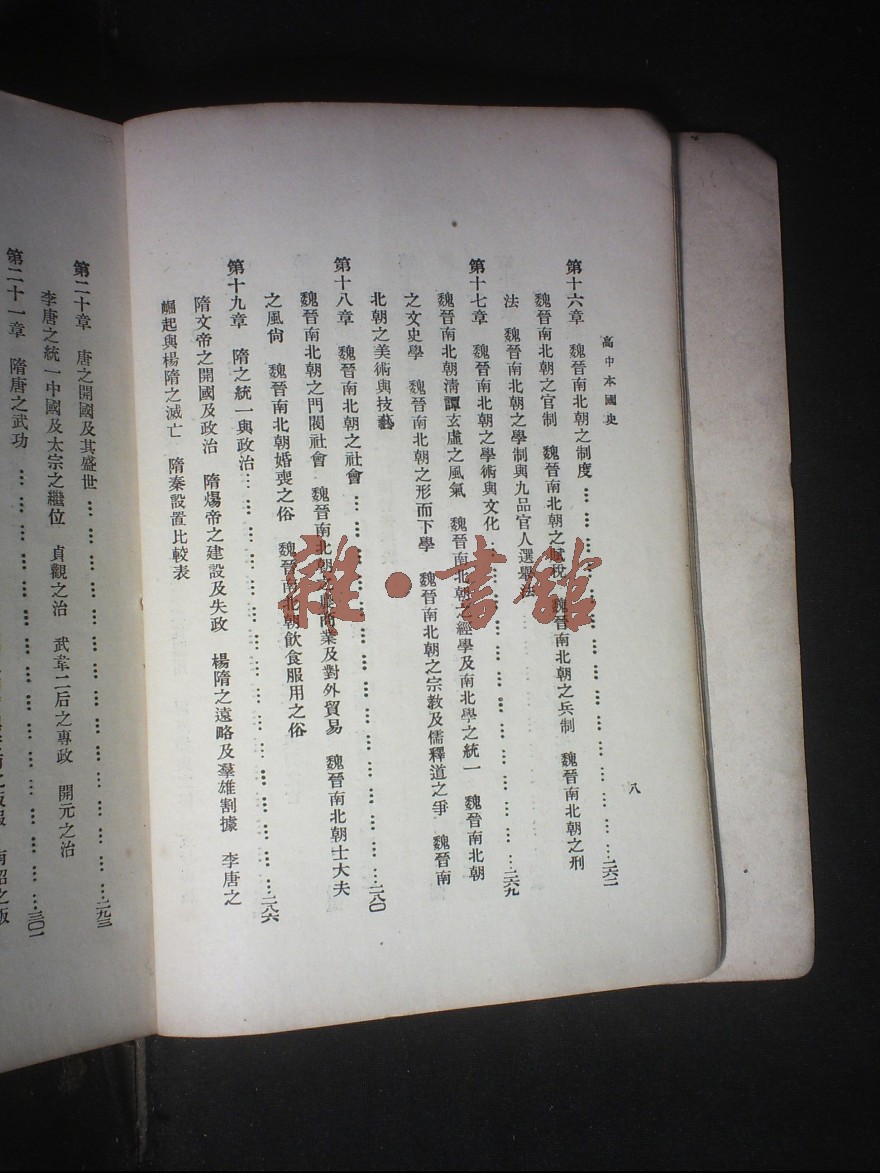 高中本國史
八
第十六章 魏晉南北朝之制度………………………………二六二
魏晉南北朝之官制 魏晉南北朝之賦稅 魏晉南北朝之兵制 魏晉南北朝之刑
法 魏晉南北朝之學制與九品官人選舉法
第十七章 魏晉南北朝之學術與文化………………………………二六九
魏晉南北朝清譚玄虛之風氣 魏晉南北朝之經學及南北學之統一 魏晉南北朝
之文史學 魏晉南北朝之形而下學 魏晉南北朝之宗教及儒釋道之爭 魏晉南
北朝之美術與技藝
第十八章 魏晉南北朝之社會………………………………二八〇
魏晉南北朝之門閥社會 魏晉南北朝之農商業及對外貿易 魏晉南北朝士大夫
之風尚 魏晉南北朝婚喪之俗 魏晉南北朝飲食服用之俗
第十九章 隋之統一與政治………………………………二八六
隋文帝之開國及政治 隋煬帝之建設及失政 楊隋之遠略及羣雄割據 李唐之
崛起與楊隋之滅亡 隋秦設置比較表
第二十章 唐之開國及其盛世………………………………二九三
李唐之統一中國及太宗之繼位 貞觀之治 武韋二后之專政 開元之治
第二十一章 隋唐之武功………………………………三〇一
南詔之叛
雜·書館